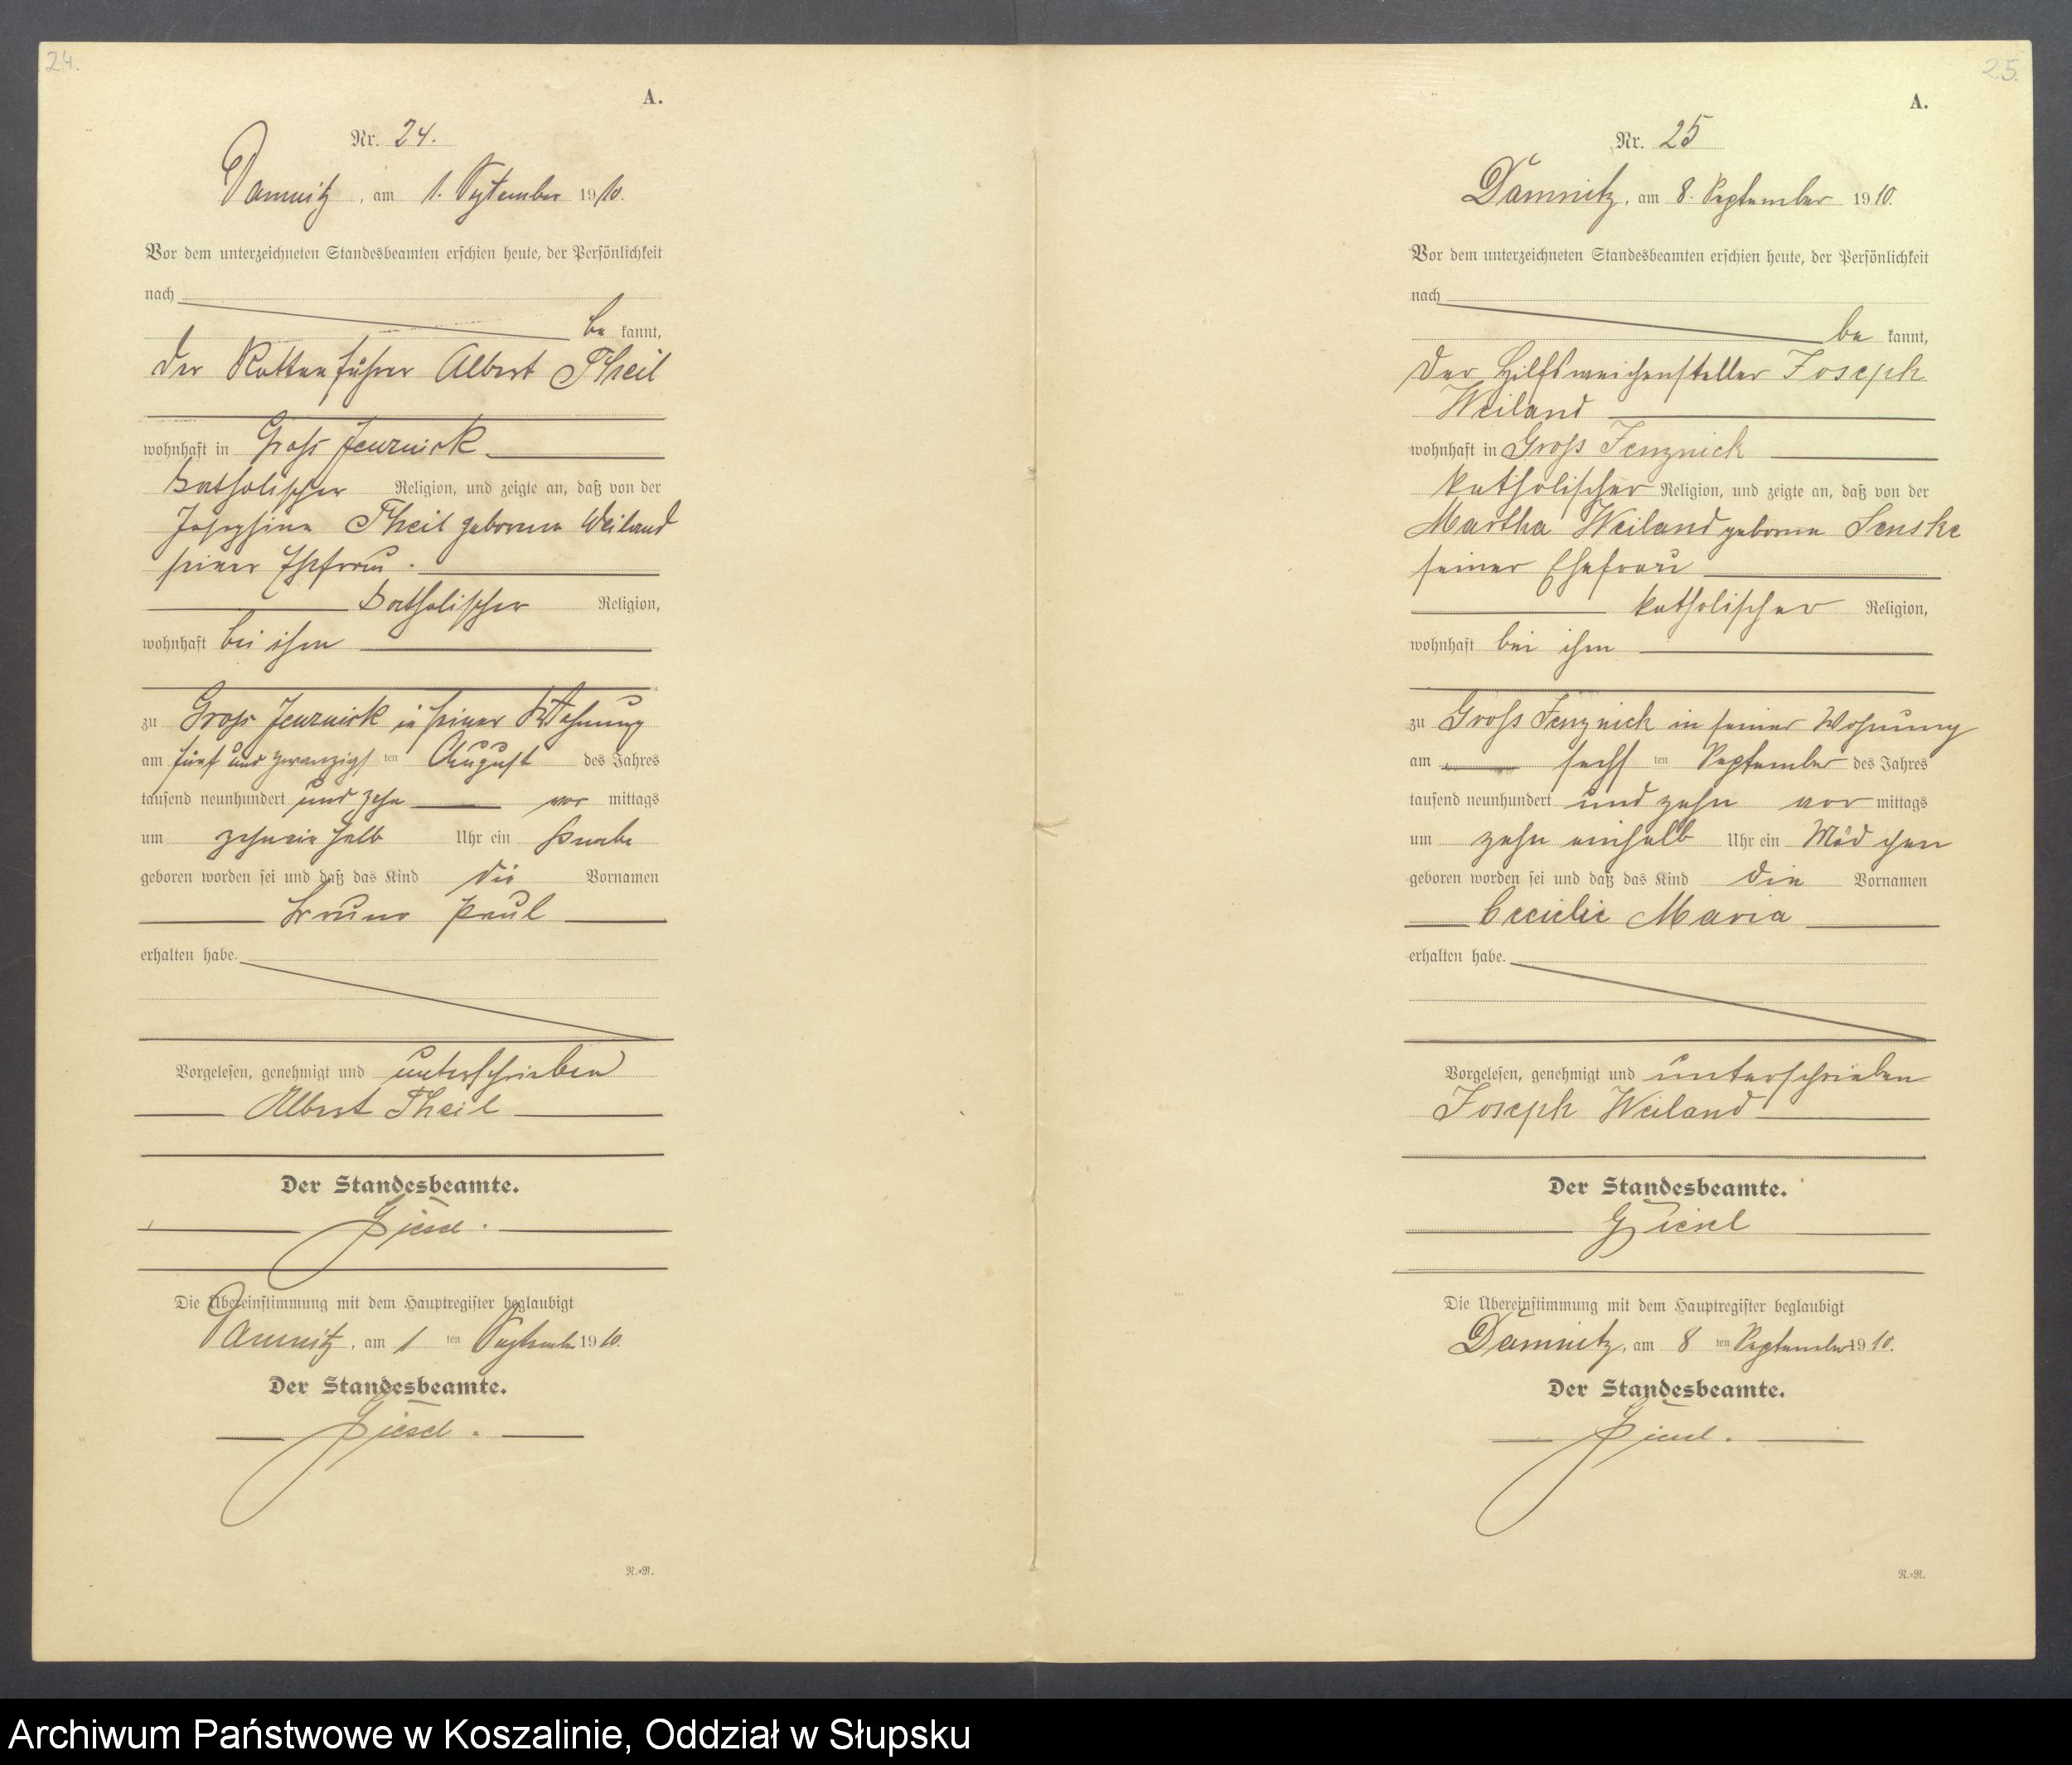 24.
A.
Nr. 24.
Damnitz, am 1. September 1910.
Vor dem unterzeichneten Standesbeamten erschien heute, der Persönlichkeit
nach
be kannt,
der Rottenführer Albert Theil
wohnhaft in Gross Jenznick
katholischer Religion, und zeigte an, daß von der
Josephine Theil geborene Weiland
seiner Ehefrau.
katholischer Religion,
wohnhaft bei ihm
zu Gross Jenznick in seiner Wohnung
am fünf und zwanzigsten August des Jahres
tausend neunhundert und zehn vor mittags
um zehneinhalb Uhr ein Knabe
geboren worden sei und daß das Kind die Vornamen
Bruno Paul
erhalten habe.
Vorgelesen, genehmigt und unterschrieben
Albert Theil
Der Standesbeamte.
Giesel.
Die Übereinstimmung mit dem Hauptregister beglaubigt
Damnitz, am 1 ten September 1910.
Der Standesbeamte.
Giesel.
N.=N.
25.
A.
Nr. 25
Damnitz, am 8. September 1910.
Vor dem unterzeichneten Standesbeamten erschien heute, der Persönlichkeit
nach
be kannt,
der Hilfsweichensteller Joseph
Weiland
wohnhaft in Gross Jenznick
katholischer Religion, und zeigte an, daß von der
Martha Weiland geborne Senske
seiner Ehefrau
katholischer Religion,
wohnhaft bei ihm
zu Gross Jenznick in seiner Wohnung
am sechsten September des Jahres
tausend neunhundert und zehn vor mittags
um zehn einhalb Uhr ein Mädchen
geboren worden sei und daß das Kind die Vornamen
Cecielie Maria
erhalten habe.
Vorgelesen, genehmigt und unterschrieben
Joseph Weiland
Der Standesbeamte.
Giesel
Die Übereinstimmung mit dem Hauptregister beglaubigt
Damnitz, am 8 ten September 1910.
Der Standesbeamte.
Giesel.
N.=N.
Archiwum Państwowe w Koszalinie, Oddział w Słupsku